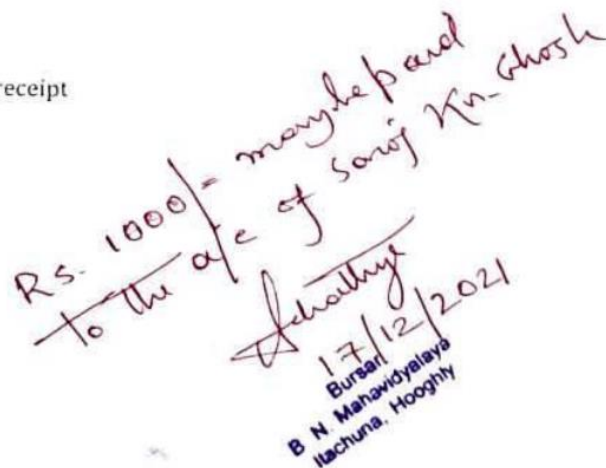 receipt
Rs. 1000/= may be paid
to the a/c of Saroj Kr. Ghosh
17/12/2021
Bursar
B. N. Mahavidyalaya
Itachuna, Hooghly